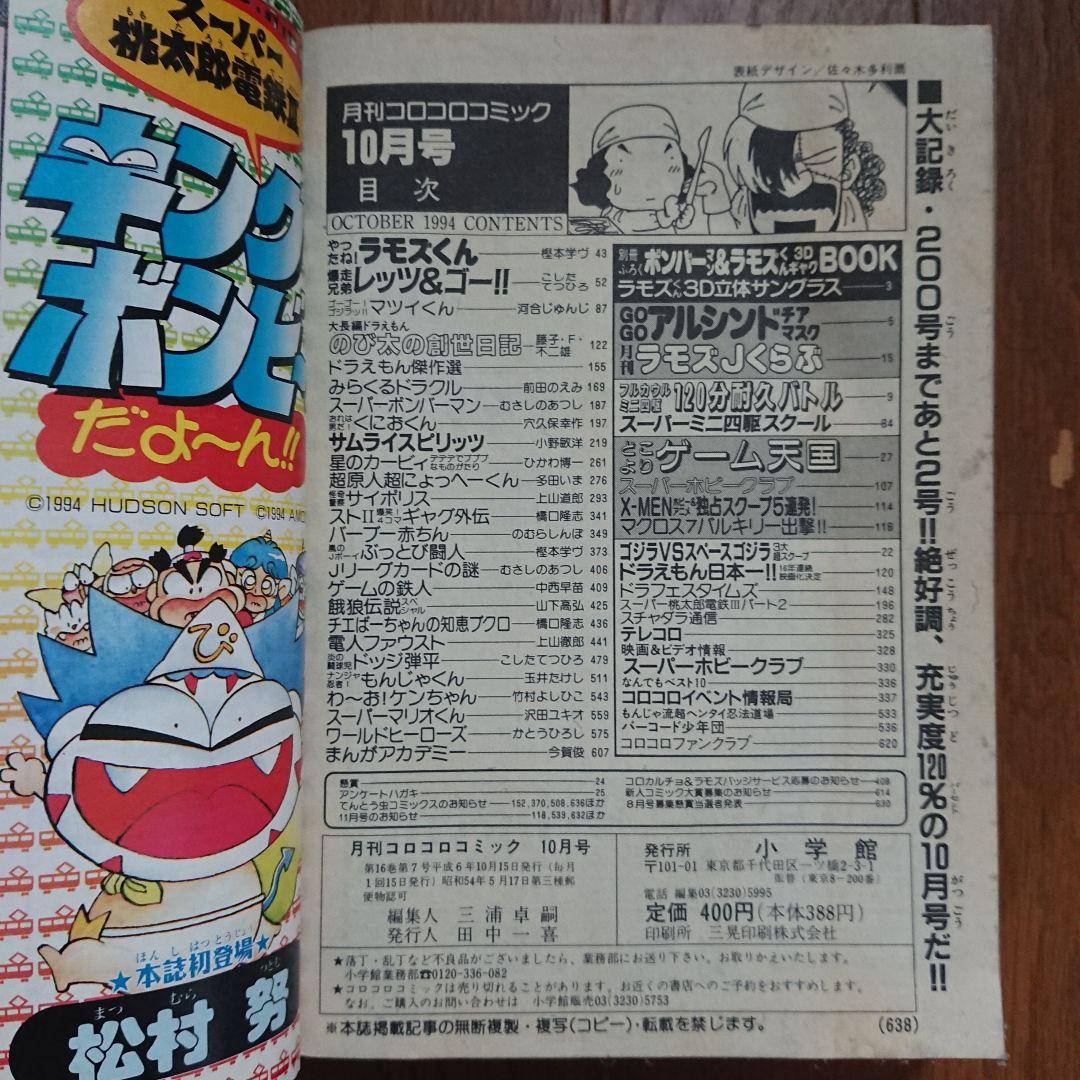 スーパー
桃太郎電鉄Ⅲ
キング
ボンビー
だよ〜ん!!
©1994 HUDSON SOFT ©1994 AMO
び
ほんしはつとうじょう
★本誌初登場★
まつ むら つとむ
松村 努
表紙デザイン/佐々木多利爾
月刊コロコロコミック
10月号
目次
OCTOBER 1994 CONTENTS
やったね!ラモズくん 樫本学ヴ 43
爆走兄弟レッツ&ゴー!! こしたてつひろ 52
ゴーゴー!ゴジラッ!!マツイくん 河合じゅんじ 87
大長編ドラえもん
のび太の創世日記 藤子・F・不二雄 122
ドラえもん傑作選 155
みらくるドラクル 前田のえみ 169
スーパーボンバーマン むさしのあつし 187
おれは男だ!くにおくん 穴久保幸作 197
サムライスピリッツ 小野敏洋 219
星のカービィ デデデでプププなものがたり ひかわ博一 261
超原人超にょっへーくん 多田いま 276
怪奇警察サイポリス 上山道郎 293
ストⅡ爆笑!4コマギャグ外伝 橋口隆志 341
バーブー赤ちん のむらしんぼ 349
風のJボーイぶっとび闘人 樫本学ヴ 373
Jリーグカードの謎 むさしのあつし 406
ゲームの鉄人 中西早苗 409
餓狼伝説スペシャル 山下高弘 425
チエばーちゃんの知恵ブクロ 橋口隆志 436
電人ファウスト 上山徹郎 441
炎の闘球児ドッジ弾平 こしたてつひろ 479
ナンジャ忍者!もんじゃくん 玉井たけし 511
わ〜お!ケンちゃん 竹村よしひこ 543
スーパーマリオくん 沢田ユキオ 559
ワールドヒーローズ かとうひろし 575
まんがアカデミー 今賀俊 607
別冊ふろく ボンバーマン&ラモズくん3DギャグBOOK
ラモズくん3D立体サングラス 3
GOGOアルシンド チアマスク 5
月刊ラモズJくらぶ 15
フルカウルミニ四駆120分耐久バトル 9
スーパーミニ四駆スクール 84
とことこよりゲーム天国 27
スーパーホビークラブ 107
X-MEN 独占スクープ5連発! 114
マクロス7バルキリー出撃!! 116
ゴジラVSスペースゴジラ3大超スクープ 22
ドラえもん日本一!!16年連続映画化決定 120
ドラフェスタイムズ 148
スーパー桃太郎電鉄Ⅲパート2 196
スチャダラ通信 282
テレコロ 325
映画&ビデオ情報 328
スーパーホビークラブ 330
なんでもベスト10 336
コロコロイベント情報局 337
もんじゃ流超ヘンタイ忍法道場 533
バーコード少年団 536
コロコロファンクラブ 620
懸賞 24
アンケートハガキ 25
てんとう虫コミックスのお知らせ 152,370,508,636ほか
11月号のお知らせ 118,539,632ほか
コロカルチョ&ラモズバッジサービス応募のお知らせ 408
新人コミック大賞募集のお知らせ 614
8月号募集懸賞当選者発表 630
月刊コロコロコミック 10月号
第16巻第7号平成6年10月15日発行(毎月
1回15日発行)昭和54年5月17日第三種郵
便物認可
編集人 三浦卓嗣
発行人 田中一喜
発行所 小学館
〒101-01 東京都千代田区一ツ橋2-3-1
振替(東京8-200番)
電話 編集03(3230)5995
定価 400円(本体388円)
印刷所 三晃印刷株式会社
★落丁・乱丁など不良品がございましたら、業務部にお送り下さい。お取りかえいたします。
小学館業務部☎0120-336-082
★コロコロコミックは売り切れることがあります。お近くの書店へのご予約をおすすめします。
なお、ご購入のお問い合わせは 小学館販売03(3230)5753
※本誌掲載記事の無断複製・複写(コピー)・転載を禁じます。
(638)
■大記録・200号まであと2号!!絶好調、充実度120%の10月号だ!!